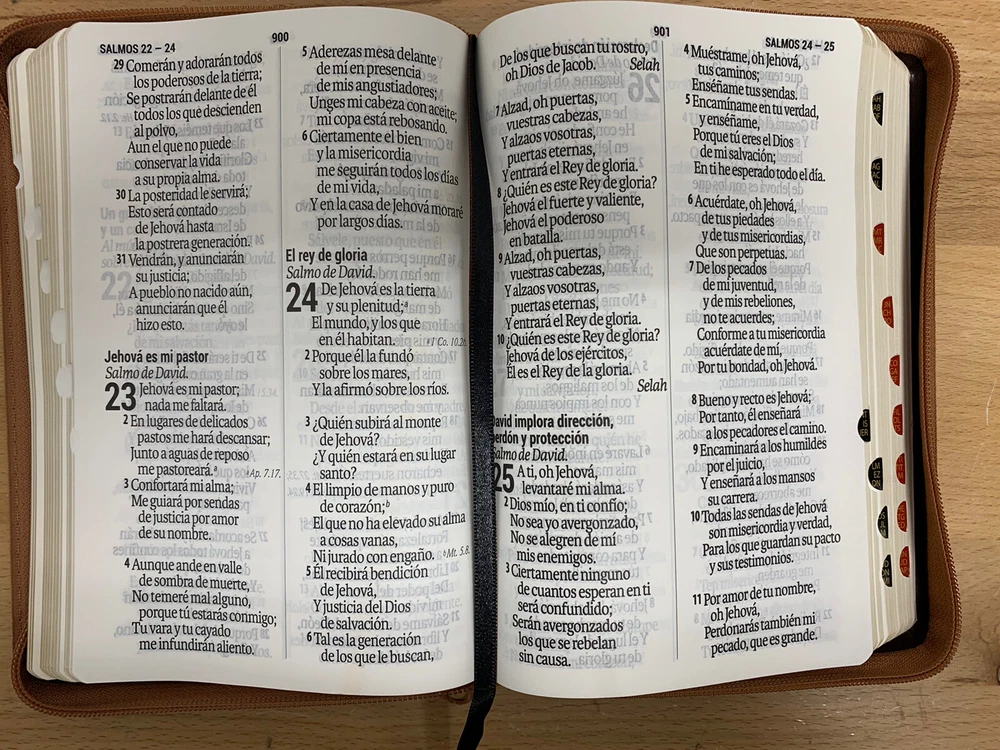 SALMOS 22 – 24
900
29 Comerán y adorarán todos
los poderosos de la tierra;
Se postrarán delante de él
todos los que descienden
al polvo,
Aun el que no puede
conservar la vida
a su propia alma.
30 La posteridad le servirá;
Esto será contado
de Jehová hasta
la postrera generación.
31 Vendrán, y anunciarán
su justicia;
A pueblo no nacido aún,
anunciarán que él
hizo esto.
Jehová es mi pastor
Salmo de David.
23 Jehová es mi pastor;
nada me faltará.
2 En lugares de delicados
pastos me hará descansar;
Junto a aguas de reposo
me pastoreará.ᵃ
ᵃAp. 7.17.
3 Confortará mi alma;
Me guiará por sendas
de justicia por amor
de su nombre.
4 Aunque ande en valle
de sombra de muerte,
No temeré mal alguno,
porque tú estarás conmigo;
Tu vara y tu cayado
me infundirán aliento.
5 Aderezas mesa delante
de mí en presencia
de mis angustiadores;
Unges mi cabeza con aceite;
mi copa está rebosando.
6 Ciertamente el bien
y la misericordia
me seguirán todos los días
de mi vida,
Y en la casa de Jehová moraré
por largos días.
El rey de gloria
Salmo de David.
24 De Jehová es la tierra
y su plenitud;ᵃ
El mundo, y los que
en él habitan.
ᵃ1 Co. 10.26.
2 Porque él la fundó
sobre los mares,
Y la afirmó sobre los ríos.
3 ¿Quién subirá al monte
de Jehová?
¿Y quién estará en su lugar
santo?
4 El limpio de manos y puro
de corazón;ᵇ
El que no ha elevado su alma
a cosas vanas,
Ni jurado con engaño.
ᵇMt. 5.8.
5 Él recibirá bendición
de Jehová,
Y justicia del Dios
de salvación.
6 Tal es la generación
de los que le buscan,
901
SALMOS 24 – 25
De los que buscan tu rostro,
oh Dios de Jacob. Selah
7 Alzad, oh puertas,
vuestras cabezas,
Y alzaos vosotras,
puertas eternas,
Y entrará el Rey de gloria.
8 ¿Quién es este Rey de gloria?
Jehová el fuerte y valiente,
Jehová el poderoso
en batalla.
9 Alzad, oh puertas,
vuestras cabezas,
Y alzaos vosotras,
puertas eternas,
Y entrará el Rey de gloria.
10 ¿Quién es este Rey de gloria?
Jehová de los ejércitos,
Él es el Rey de la gloria.
Selah
David implora dirección,
perdón y protección
Salmo de David.
25 A ti, oh Jehová,
levantaré mi alma.
2 Dios mío, en ti confío;
No sea yo avergonzado,
No se alegren de mí
mis enemigos.
3 Ciertamente ninguno
de cuantos esperan en ti
será confundido;
Serán avergonzados
los que se rebelan
sin causa.
4 Muéstrame, oh Jehová,
tus caminos;
Enséñame tus sendas.
5 Encamíname en tu verdad,
y enséñame,
Porque tú eres el Dios
de mi salvación;
En ti he esperado todo el día.
6 Acuérdate, oh Jehová,
de tus piedades
y de tus misericordias,
Que son perpetuas.
7 De los pecados
de mi juventud,
y de mis rebeliones,
no te acuerdes;
Conforme a tu misericordia
acuérdate de mí,
Por tu bondad, oh Jehová.
8 Bueno y recto es Jehová;
Por tanto, él enseñará
a los pecadores el camino.
9 Encaminará a los humildes
por el juicio,
Y enseñará a los mansos
su carrera.
10 Todas las sendas de Jehová
son misericordia y verdad,
Para los que guardan su pacto
y sus testimonios.
11 Por amor de tu nombre,
oh Jehová,
Perdonarás también mi
pecado, que es grande.